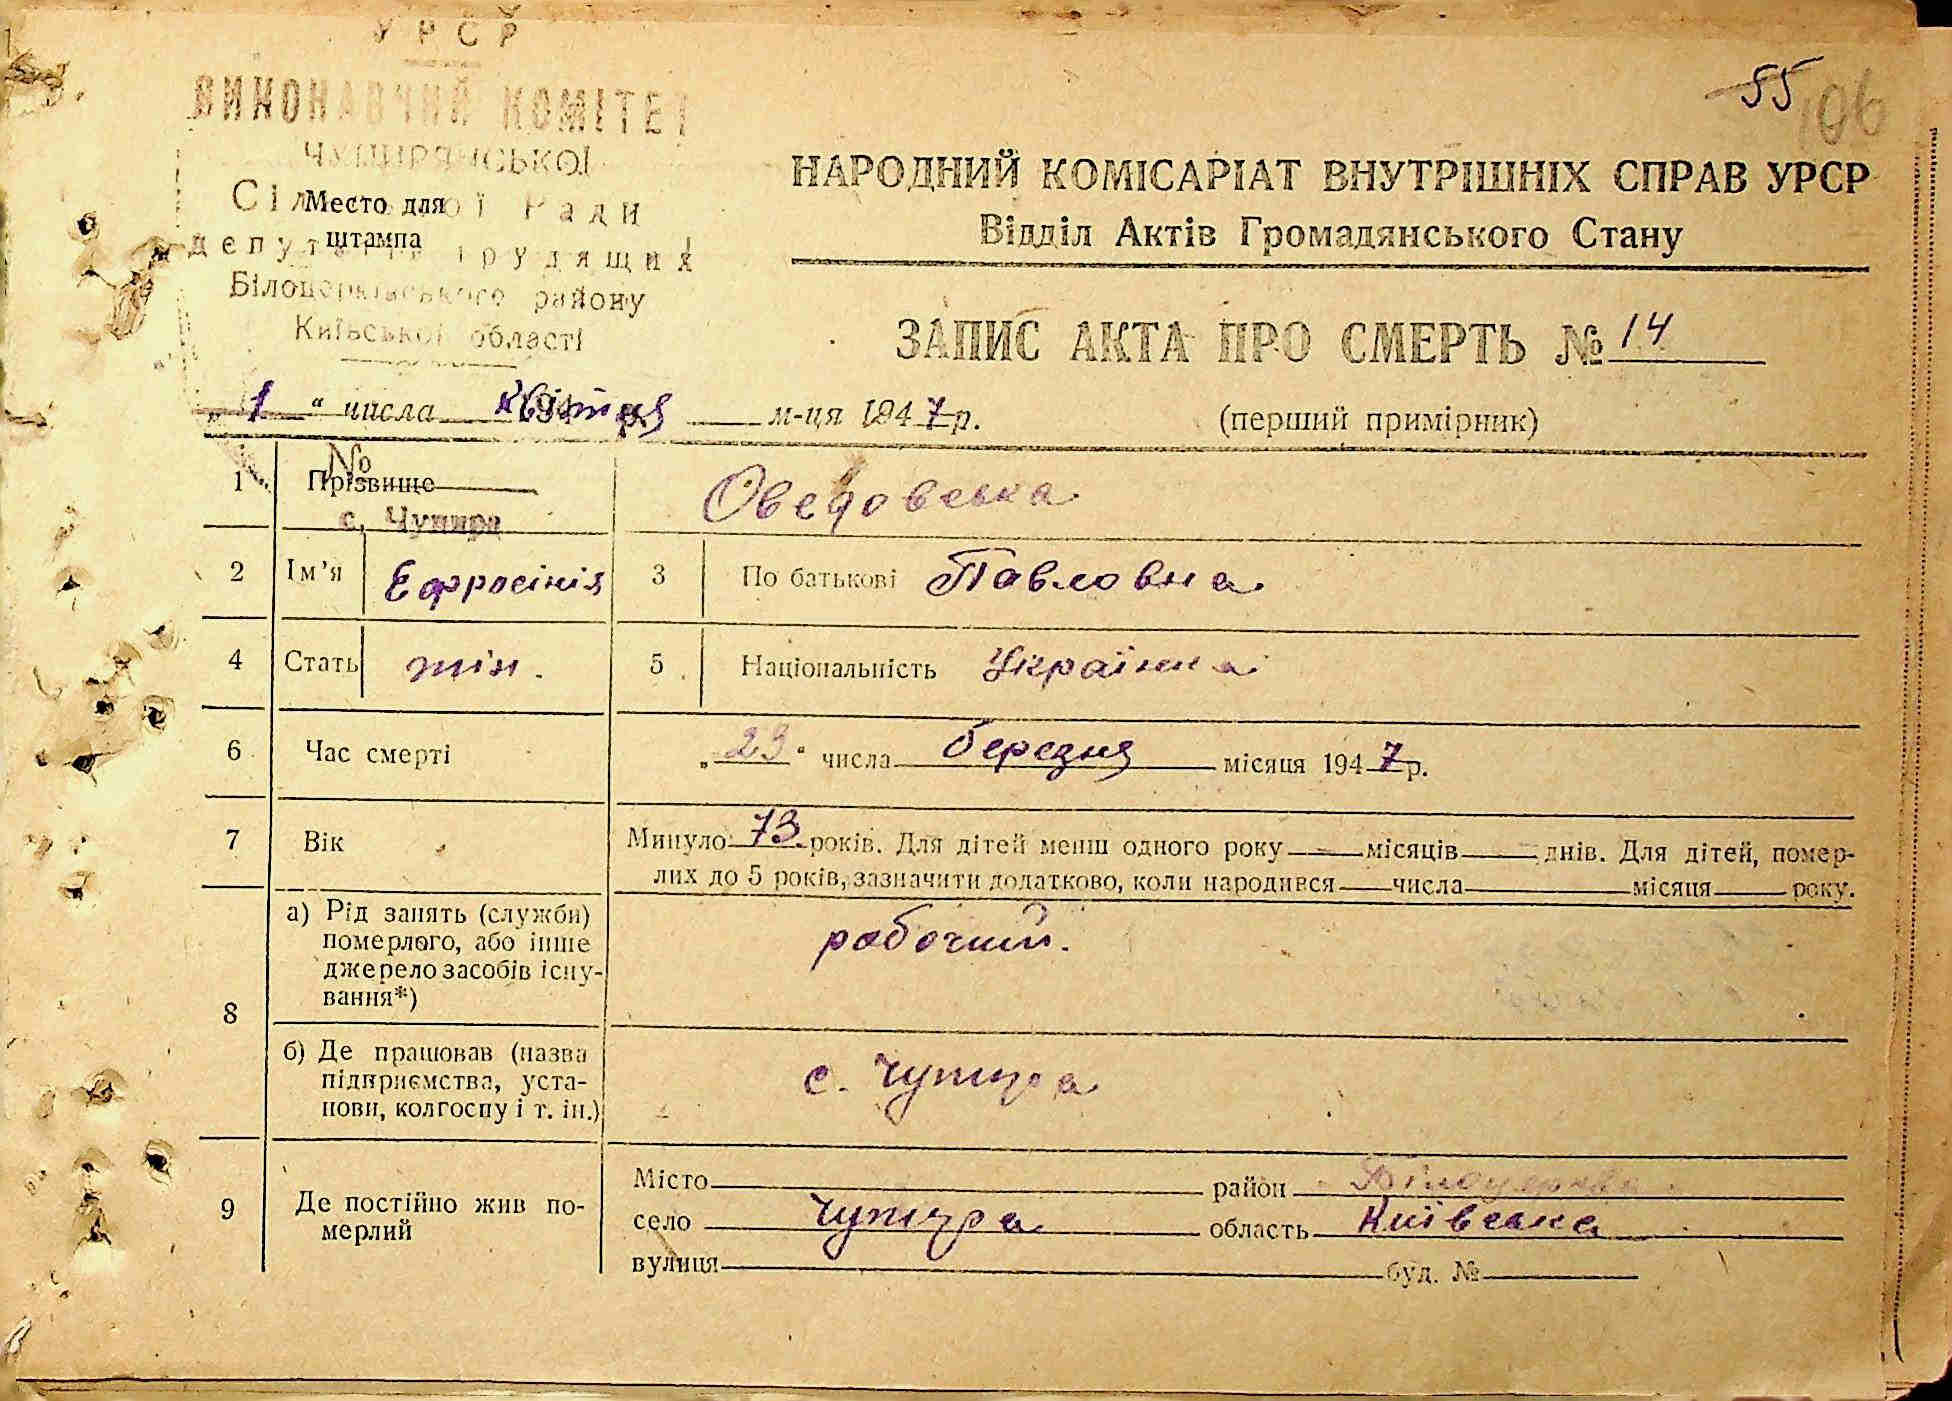 УРСР
ВИКОНАВЧИЙ КОМІТЕТ
ЧУПИРЯНСЬКОЇ
Сільської Ради
депутатів трудящих
Білоцерківського району
Київської області
Место для
штампа
55 106
НАРОДНИЙ КОМІСАРІАТ ВНУТРІШНІХ СПРАВ УРСР
Відділ Актів Громадянського Стану
ЗАПИС АКТА ПРО СМЕРТЬ № 14
„1“ числа квітня м-ця 1947 р. (перший примірник)
№
с. Чупира
1 Прізвище
2 Ім’я Ефросінія 3 По батькові Павловна
4 Стать жін. 5 Національність Українка
6 Час смерті „23“ числа березня місяця 1947 р.
7 Вік Минуло 73 років. Для дітей менш одного року місяців днів. Для дітей, помер-
лих до 5 років, зазначити додатково, коли народився числа місяця року.
8 а) Рід занять (служби)
померлого, або інше
джерело засобів існу-
вання*)
робочий.
б) Де працював (назва
підприємства, уста-
нови, колгоспу і т. ін.)
с. Чупира
9 Де постійно жив по-
мерлий
Місто район
село Чупира область Київська
вулиця буд. №